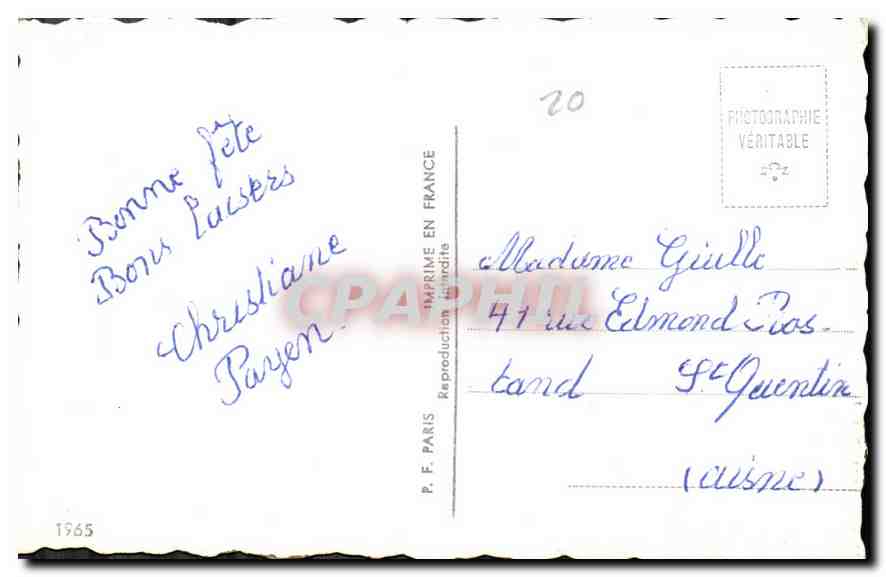 20
PHOTOGRAPHIE
VÉRITABLE
Bonne fête
Bons baisers
Christiane
Payen.
P. F. PARIS IMPRIME EN FRANCE
Reproduction interdite
CPAPHIL
Madame Giulle
41 rue Edmond Ros-
tand St Quentin
(aisne)
1965